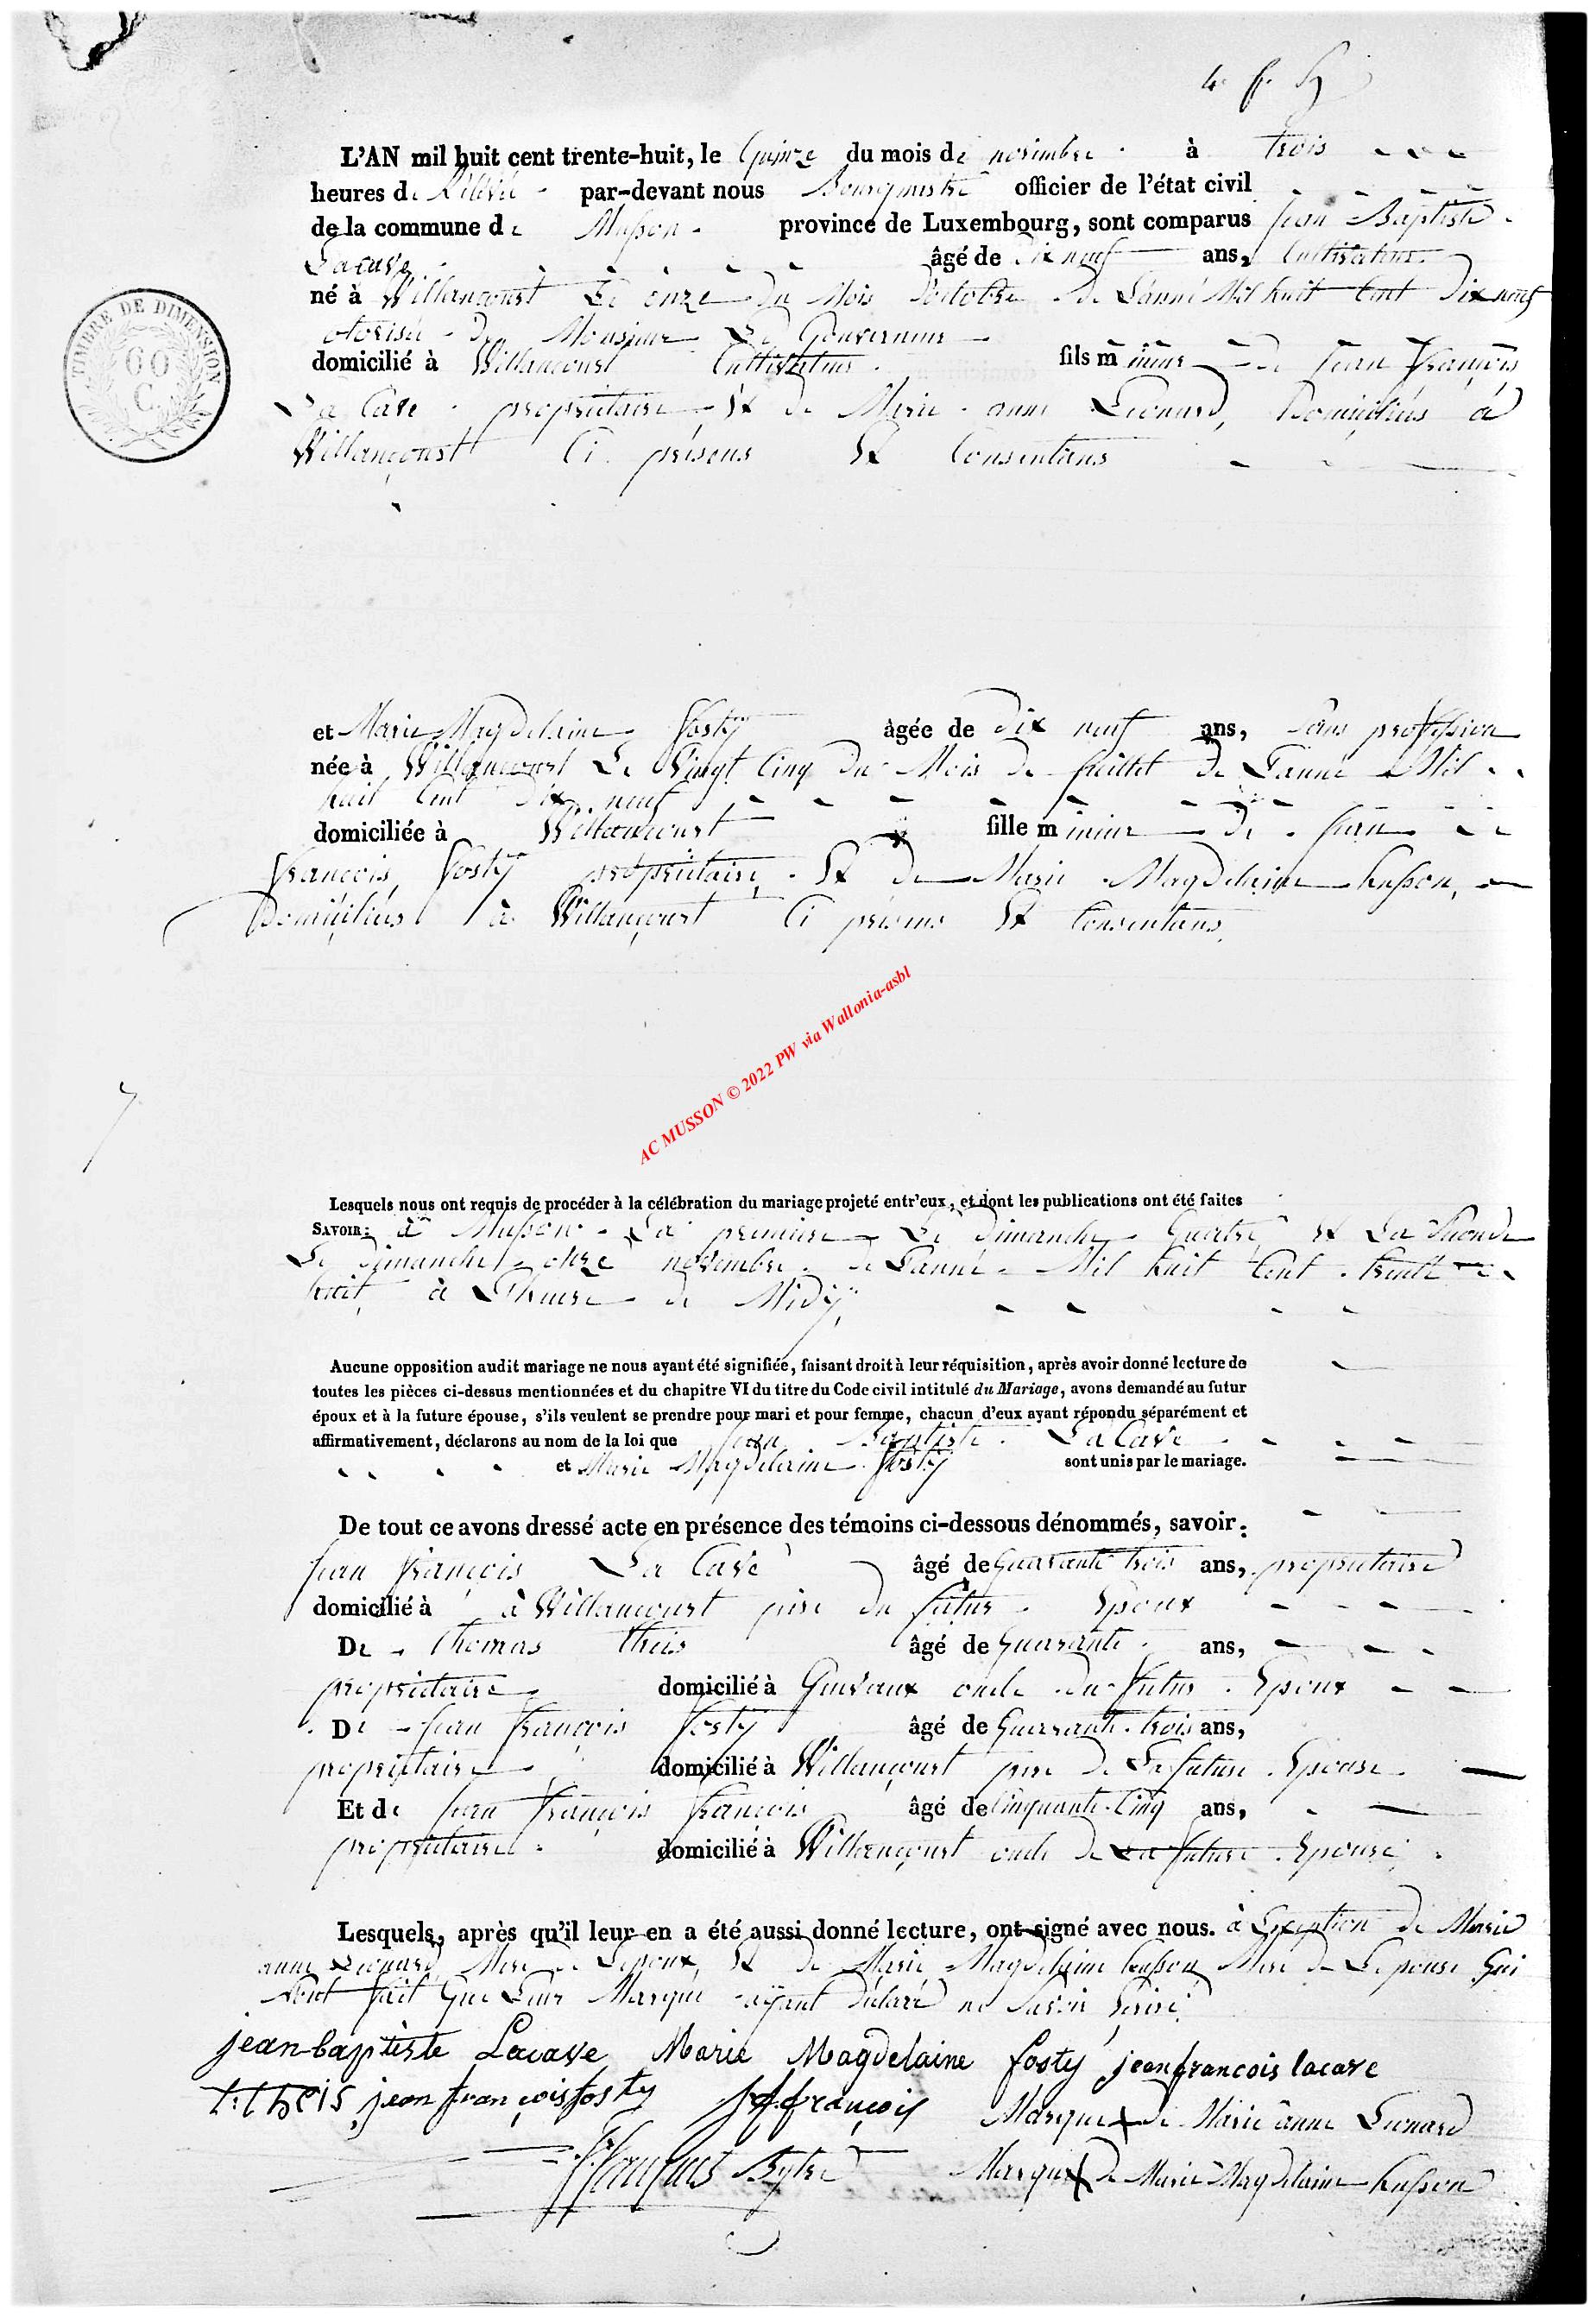 L'AN mil huit cent trente-huit, le Quinze du mois de novembre à trois
heures de Rélévé par-devant nous Bourgmestre officier de l'état civil
de la commune de Musson province de Luxembourg, sont comparus Jean Baptiste
Lacave âgé de dix neuf ans, Cultivateur
né à Willancourt Le onze du Mois D'octobre de L'anné Mil huit Cent Dix neuf
otorisé de Monsieur Le Gouverneur
domicilié à Willancourt Cultivateur fils mineur de Jean François
La Cave propriétaire Et de Marie anne Leonard, Domiciliés à
Willancourt Ci présens Et Consentans
et Marie Magdelaine Fosty âgée de Dix neuf ans, Sans profession
née à Willancourt Le Vingt Cinq du Mois de Juillet De L'anné Mil
huit Cent Dix neuf
domiciliée à Willancourt fille mineur de Jean
François Fosty propriétaire, Et De Marie Magdelaine husson,
Domiciliés à Willancourt Ci présens Et Consentans
AC MUSSON © 2022 PW via Wallonia-asbl
Lesquels nous ont requis de procéder à la célébration du mariage projeté entr'eux, et dont les publications ont été faites
SAVOIR: à Musson La première Le Dimanche Quatre Et La Seconde
Le Dimanche onze novembre de L'anné Mil huit Cent trente
huit, à L'heure de Midÿ
Aucune opposition audit mariage ne nous ayant été signifiée, faisant droit à leur réquisition, après avoir donné lecture de
toutes les pièces ci-dessus mentionnées et du chapitre VI du titre du Code civil intitulé du Mariage, avons demandé au futur
époux et à la future épouse, s'ils veulent se prendre pour mari et pour femme, chacun d'eux ayant répondu séparément et
affirmativement, déclarons au nom de la loi que Jean Baptiste La Cave
et Marie Magdelaine Fosty sont unis par le mariage.
De tout ce avons dressé acte en présence des témoins ci-dessous dénommés, savoir:
Jean François La Cave âgé de Quarante trois ans, propriétaire
domicilié à à Willancourt père du futur Epoux
De Thomas Theis âgé de Quarante ans,
propriétaire domicilié à oncle du futur Epoux
De Jean François Fosty âgé de Quarante trois ans,
propriétaire domicilié à Willancourt père de La future Epouse
Et de Jean François François âgé de Cinquante Cinq ans,
propriétaire domicilié à Willancourt oncle De La future Epouse
Lesquels, après qu'il leur en a été aussi donné lecture, ont signé avec nous. à Exception de Marie
anne Leonard Mère de L'epoux, Et de Marie Magdelaine husson Mère de L'epouse Qui
n'ont fait Que Leur Marque ayant Déclaré ne Savoir Ecrire
jean-baptiste Lacave Marie Magdelaine fosty jean francois lacave
t: theis jean françois fosty jf françois Marque de Marie anne Leonard
Marque de Marie Magdelaine husson
TIMBRE DE DIMENSION
60
C.